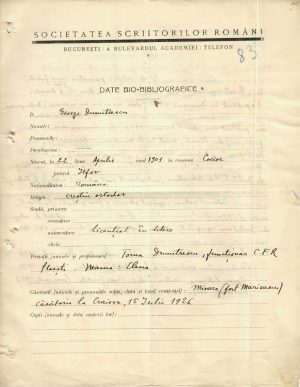 SOCIETATEA SCRIITORILOR ROMÂNI
BUCUREȘTI / 4 BULEVARDUL ACADEMIEI / TELEFON
83
DATE BIO-BIBLIOGRAFICE
George Dumitrescu
Numele:
Prenumele:
Pseudonime:
Născut, în 22 luna Aprilie anul 1901 în comuna Cocioc
județul Ilfov
Naționalitatea Română
Religia: creștin ortodox
Studii, primare
secundare
universitare licențiat în litere
alte
Părinții (numele și profesiunea): Toma Dumitrescu, funcționar C.F.R.
Ploești. Mama: Elena.
Căsătorit (numele și pronumele soției, data și locul cununiei): Mioara (fost Marinescu)
căsătorie la Craiova, 15 Iulie 1926
Copii (numele și data nașterii lor):